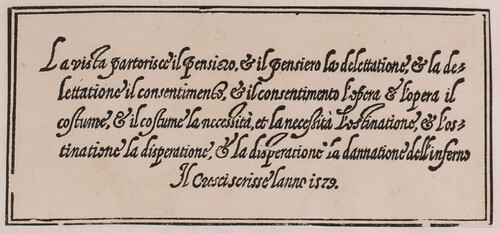 La vista partorisce il pensiero, & il pensiero la delettatione, & la de-
lettatione il consentimento, & il consentimento l'opera & l'opera il
costume, & il costume la necessità, et la necessità l'ostinatione, & l'os-
tinatione la disperatione, & la disperatione la dannatione dell'inferno
Il Cresci scrisse l'anno 1579.